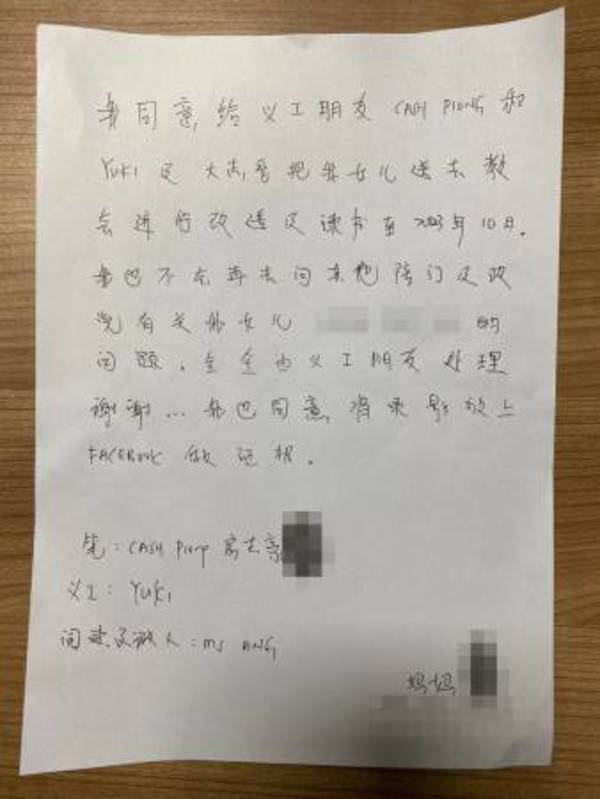 我同意,给义工朋友 CASH PIONG 和
YUKI 及 把我女儿送去教
会进行改造及读书至 2023年10月.
我也不会再去问 部门及政
党有关我女儿 的
问题.全全由义工朋友处理
谢谢... 我也同意,将录影放上
FACEBOOK 做证据。
笔:CASH Piong
义工:YUKI
人:MS ANG
妈妈